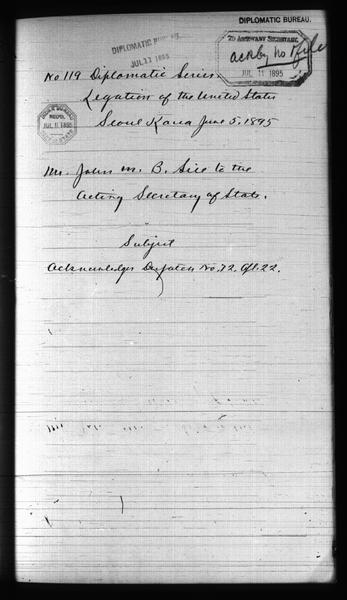 DIPLOMATIC BUREAU.
DIPLOMATIC BUREAU.
JUL 11 1895
TO ASSISTANT SECRETARY,
ack by No 78 file
JUL 11 1895
No 119 Diplomatic Series.
Legation of the United States
Seoul Korea June 5, 1895
INDEX BUREAU
REC'D.
JUL 11 1895
Mr. John M. B. Sill to the
Acting Secretary of State.
Subject
Acknowledges Despatch No. 72. Apl. 22.